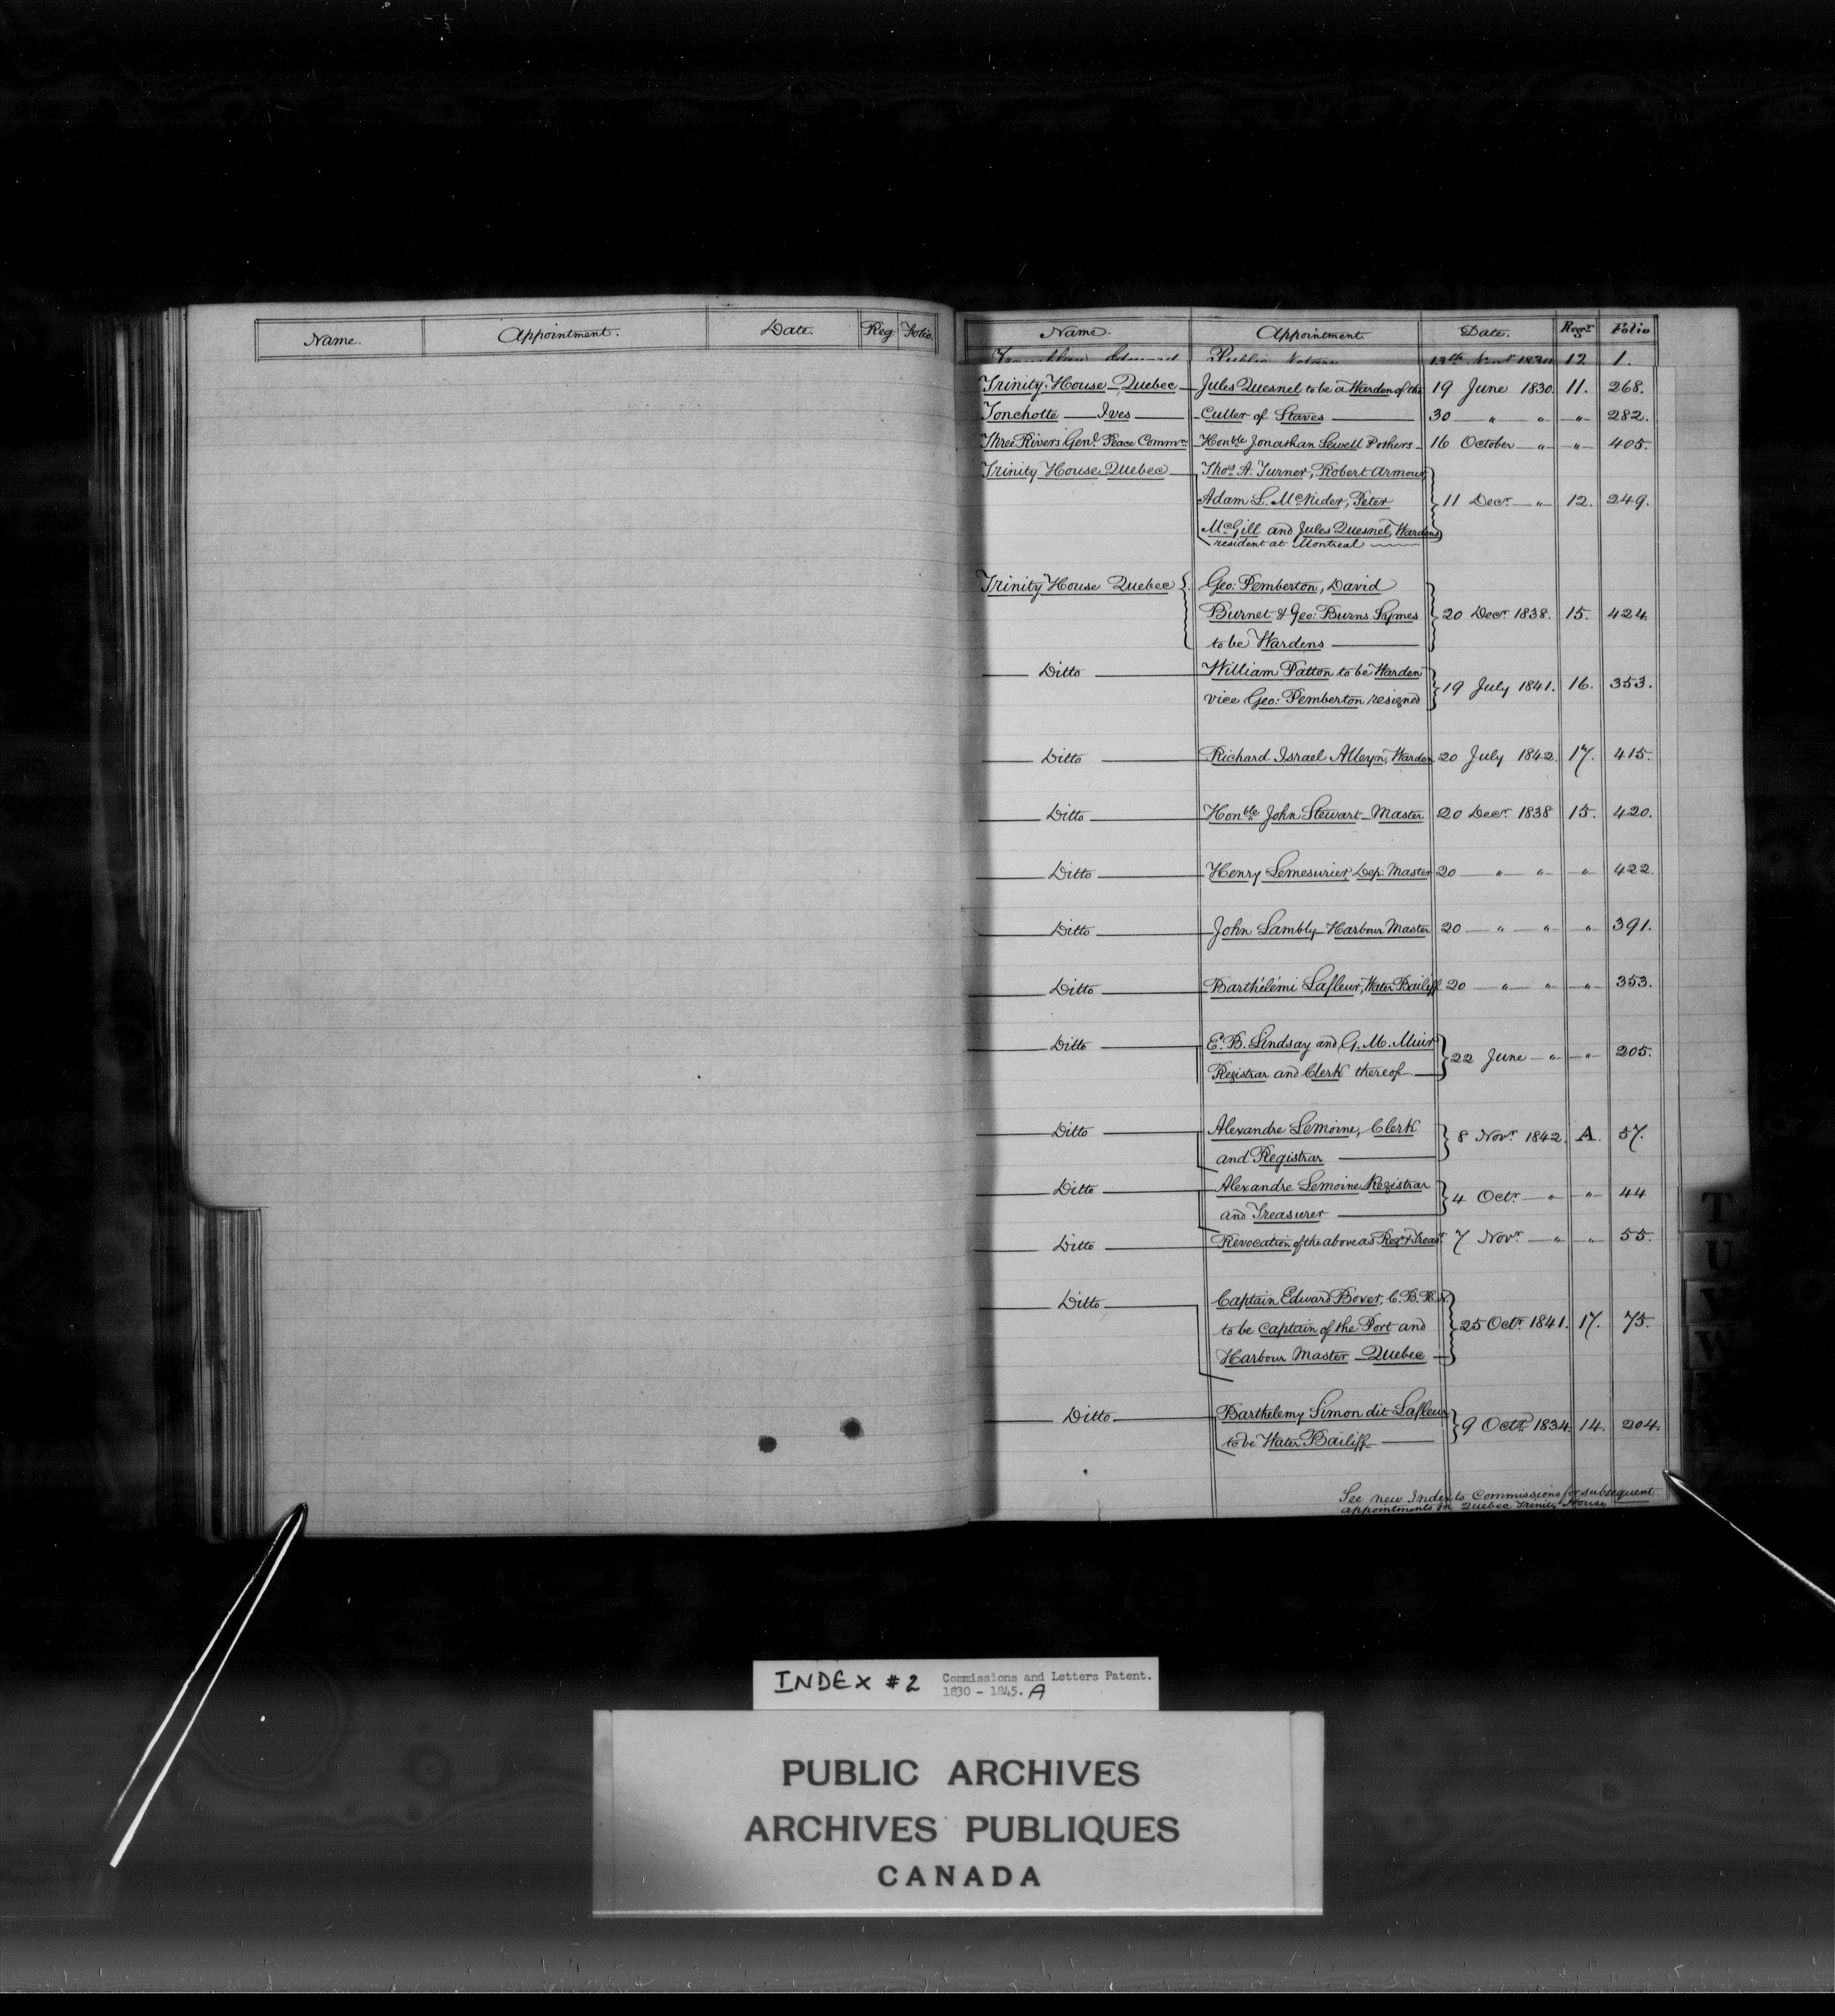 Name. Appointment. Date. Reg. Folio.
Name. Appointment Date. Regr. Folio
Public Notary 13th 1830 12 1.
Trinity House Quebec Jules Quesnel to be a Warden of the 19 June 1830. 11. 268.
Tonchotte Ives Culler of Staves 30 " " " 282.
Three Rivers Genl. Peace Commn. Honble Jonathan Sewell & others 16 October " " 405.
Trinity House Quebec Thos. A. Turner, Robert Armour,
Adam L. McNider, Peter 11 Decr. " 12. 249.
McGill and Jules Quesnel, Wardens
resident at Montreal
Trinity House Quebec Geo: Pemberton, David
Burnet & Geo: Burns Symes 20 Decr. 1838. 15. 424.
to be Wardens
Ditto William Patton to be Warden
vice Geo: Pemberton resigned 19 July 1841. 16. 353.
Ditto Richard Israel Alleyn, Warden 20 July 1842. 17. 415.
Ditto Honble John Stewart Master 20 Decr. 1838 15. 420.
Ditto Henry Lemesurier, Dep: Master 20 " " " 422.
Ditto John Lambly Harbour Master 20 " " " 391.
Ditto Barthélémi Lafleur, Water Bailiff 20 " " " 353.
Ditto E. B. Lindsay and G. M. Muir
Registrar and Clerk thereof 22 June " " 205.
Ditto Alexandre Lemoine, Clerk
and Registrar 8 Novr. 1842. A. 57.
Ditto Alexandre Lemoine Registrar
and Treasurer 4 Octr. " " 44
Ditto Revocation of the above as Regr. & Treasr. 7 Novr. " " 55.
Ditto Captain Edward Boxer, C.B. R.N.
to be Captain of the Port and 25 Octr. 1841. 17. 75.
Harbour Master Quebec
Ditto Barthelemy Simon dit Lafleur
to be Water Bailiff 9 Octr. 1834. 14. 204.
See new Index to Commissions for subsequent
appointments for Quebec Trinity House
T
U
V
W
X
INDEX #2 Commissions and Letters Patent.
1830 - 1845. A
PUBLIC ARCHIVES
ARCHIVES PUBLIQUES
CANADA